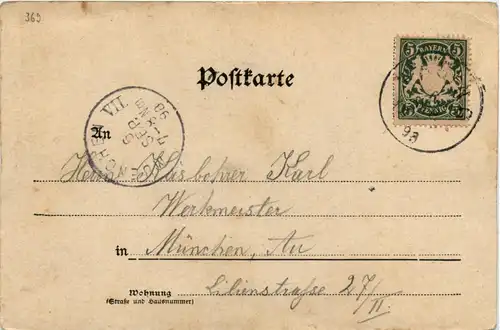 369
BAYERN
5 5
PFENNIG
Postkarte
VII
98
93
An
Herrn Klasbohrer Karl
Werkmeister
in München, Au
Wohnung Lilienstrasse 27/II
(Straße und Hausnummer)